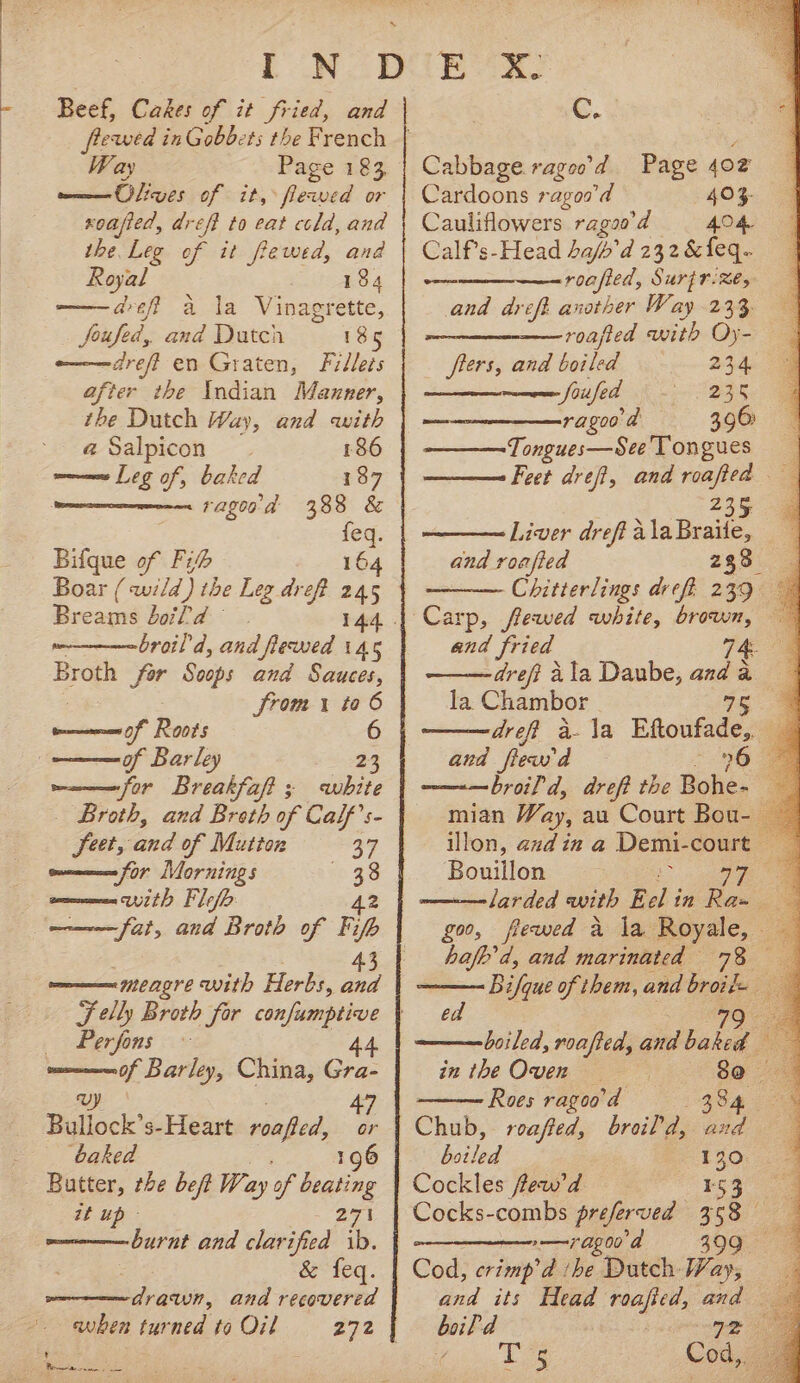 INDEX.
Beef, Cakes of it fried, and
ſtewed in Gobbets the French
Way Page 183
——Olives of it, ſtewed or
roaſted, dreſt to eat cold, and
the Leg of it ſtewed, and
Royal 184
——dreſt à la Vinagrette,
ſouſed, and Dutch 185
——dreſt en Graten, Fillets
after the Indian Manner,
the Dutch Way, and with
a Salpicon 186
——Leg of, baked 187
————ragoo'd 388 &
ſeq.
Biſque of Fiſh 164
Boar (wild) the Leg dreſt 245
Breams boil'd 144
———broil'd, and ſtewed 145
Broth for Soops and Sauces,
from 1 to 6
———of Roots 6
———of Barley 23
———for Breakfaſt; white
Broth, and Broth of Calf's-
feet, and of Mutton 37
———for Mornings 38
———with Fleſh 42
———fat, and Broth of Fiſh
43
———meagre with Herbs, and
Jelly Broth for conſumptive
Perſons 44
———of Barley, China, Gra-
vy 47
Bullock's-Heart roaſted, or
baked 196
Butter, the beſt Way of beating
it up 271
———burnt and clarified ib.
& ſeq.
———drawn, and recovered
when turned to Oil 272
C.
Cabbage ragoo'd Page 402
Cardoons ragoo'd 403
Cauliflowers ragoo'd 404
Calf's-Head haſh'd 232 & ſeq.
————roaſted, Surprize,
and dreſt another Way 233
————roaſted with Oy-
ſters, and boiled 234
————ſouſed 235
————ragoo'd 396
———Tongues—See Tongues
———Feet dreſt, and roaſted
235
———Liver dreſt à la Braiſe,
and roaſted 238
———Chitterlings dreſt 239
Carp, ſtewed white, brown,
and fried 74
———dreſt à la Daube, and à
la Chambor 75
———dreſt à la Eſtoufade,
and ſtew'd 76
———broil'd, dreſt the Bohe-
mian Way, au Court Bou-
illon, and in a Demi-court
Bouillon 77
———larded with Eel in Ra-
goo, ſtewed à la Royale,
haſh'd, and marinated 78
———Biſque of them, and broil-
ed 79
———boiled, roaſted, and baked
in the Oven 80
———Roes ragoo'd 384
Chub, roaſted, broil'd, and
boiled 130
Cockles ſtew'd 153
Cocks-combs preſerved 358
————ragoo'd 399
Cod, crimp'd the Dutch Way,
and its Head roaſted, and
boil'd 72
T 5 Cod,